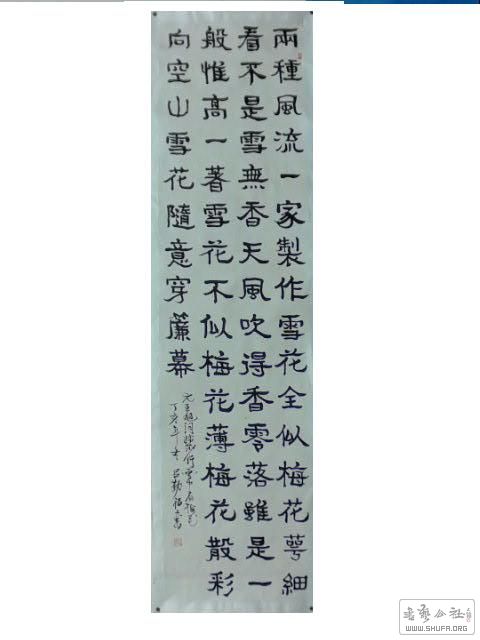 兩種風流一家製作雪花全似梅花萼細
看不是雪無香天風吹得香零落雖是一
般惟高一著雪花不似梅花薄梅花散彩
向空山雪花隨意穿簾幕
元王旭詞踏莎行雪中看梅花
丁亥年
书艺公社
WWW.SHUFA.ORG